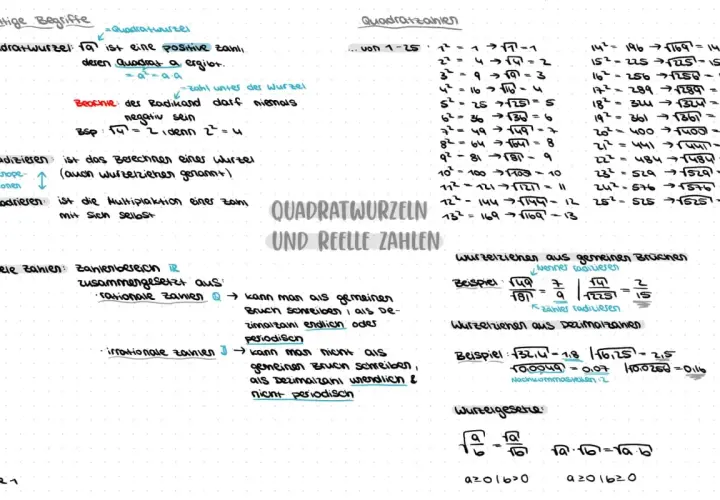 htige Begriffe
=Quadratwurzel
dratwurzel: √a ist eine positive Zahl,
deren Quadrat a ergibt.
= a² = a·a
=Zahl unter der Wurzel
Beachte: der Radikand darf niemals
negativ sein
Bsp: √4 = 2, denn 2² = 4
adizieren: ist das Berechnen einer Wurzel
(auch Wurzelziehen genannt)
onen
adrieren: ist die Multiplaktion einer Zahl
mit sich selbst
Quadratzahlen
... von 1-25:
1² = 1 → √1 = 1
2² = 4 → √4 = 2
3² = 9 → √9 = 3
4² = 16 → √16 = 4
5² = 25 → √25 = 5
6² = 36 → √36 = 6
7² = 49 → √49 = 7
8² = 64 → √64 = 8
9² = 81 → √81 = 9
10² = 100 → √100 = 10
11² = 121 → √121 = 11
12² = 144 → √144 = 12
13² = 169 → √169 = 13
14² = 196 → √169 = 14
15² = 225 → √225 = 15
16² = 256 → √256 =
17² = 289 → √289 =
18² = 324 → √324 =
19² = 361 → √361 =
20² = 400 → √400 =
21² = 441 → √441 =
22² = 484 → √484
23² = 529 → √529
24² = 576 → √576
25² = 625 → √625
QUADRATWURZELN
UND REELLE ZAHLEN
elle Zahlen: Zahlenbereich ℝ
zusammengesetzt aus:
· rationale Zahlen ℚ → kann man als gemeinen
Bruch schreiben, als De-
zimalzahl endlich oder
periodisch
· irrationale Zahlen 𝕁 → kann man nicht als
gemeinen Bruch schreiben,
als Dezimalzahl unendlich &
nicht periodisch
Wurzelziehen aus gemeinen Brüchen
Nenner radizieren
Beispiel: √49/√81 = 7/9 | √4/√225 = 2/15
Zähler radizieren
Wurzelziehen aus Dezimalzahlen
Beispiel: √32,4 = 1,8 | √6,25 = 2,5
√0,0049 = 0,07 | √0,0256 = 0,16
Nachkommastellen: 2
Wurzelgesetze:
√a/b = √a/√b √a · √b = √a·b
a≥0 | b>0 a≥0 | b≥0